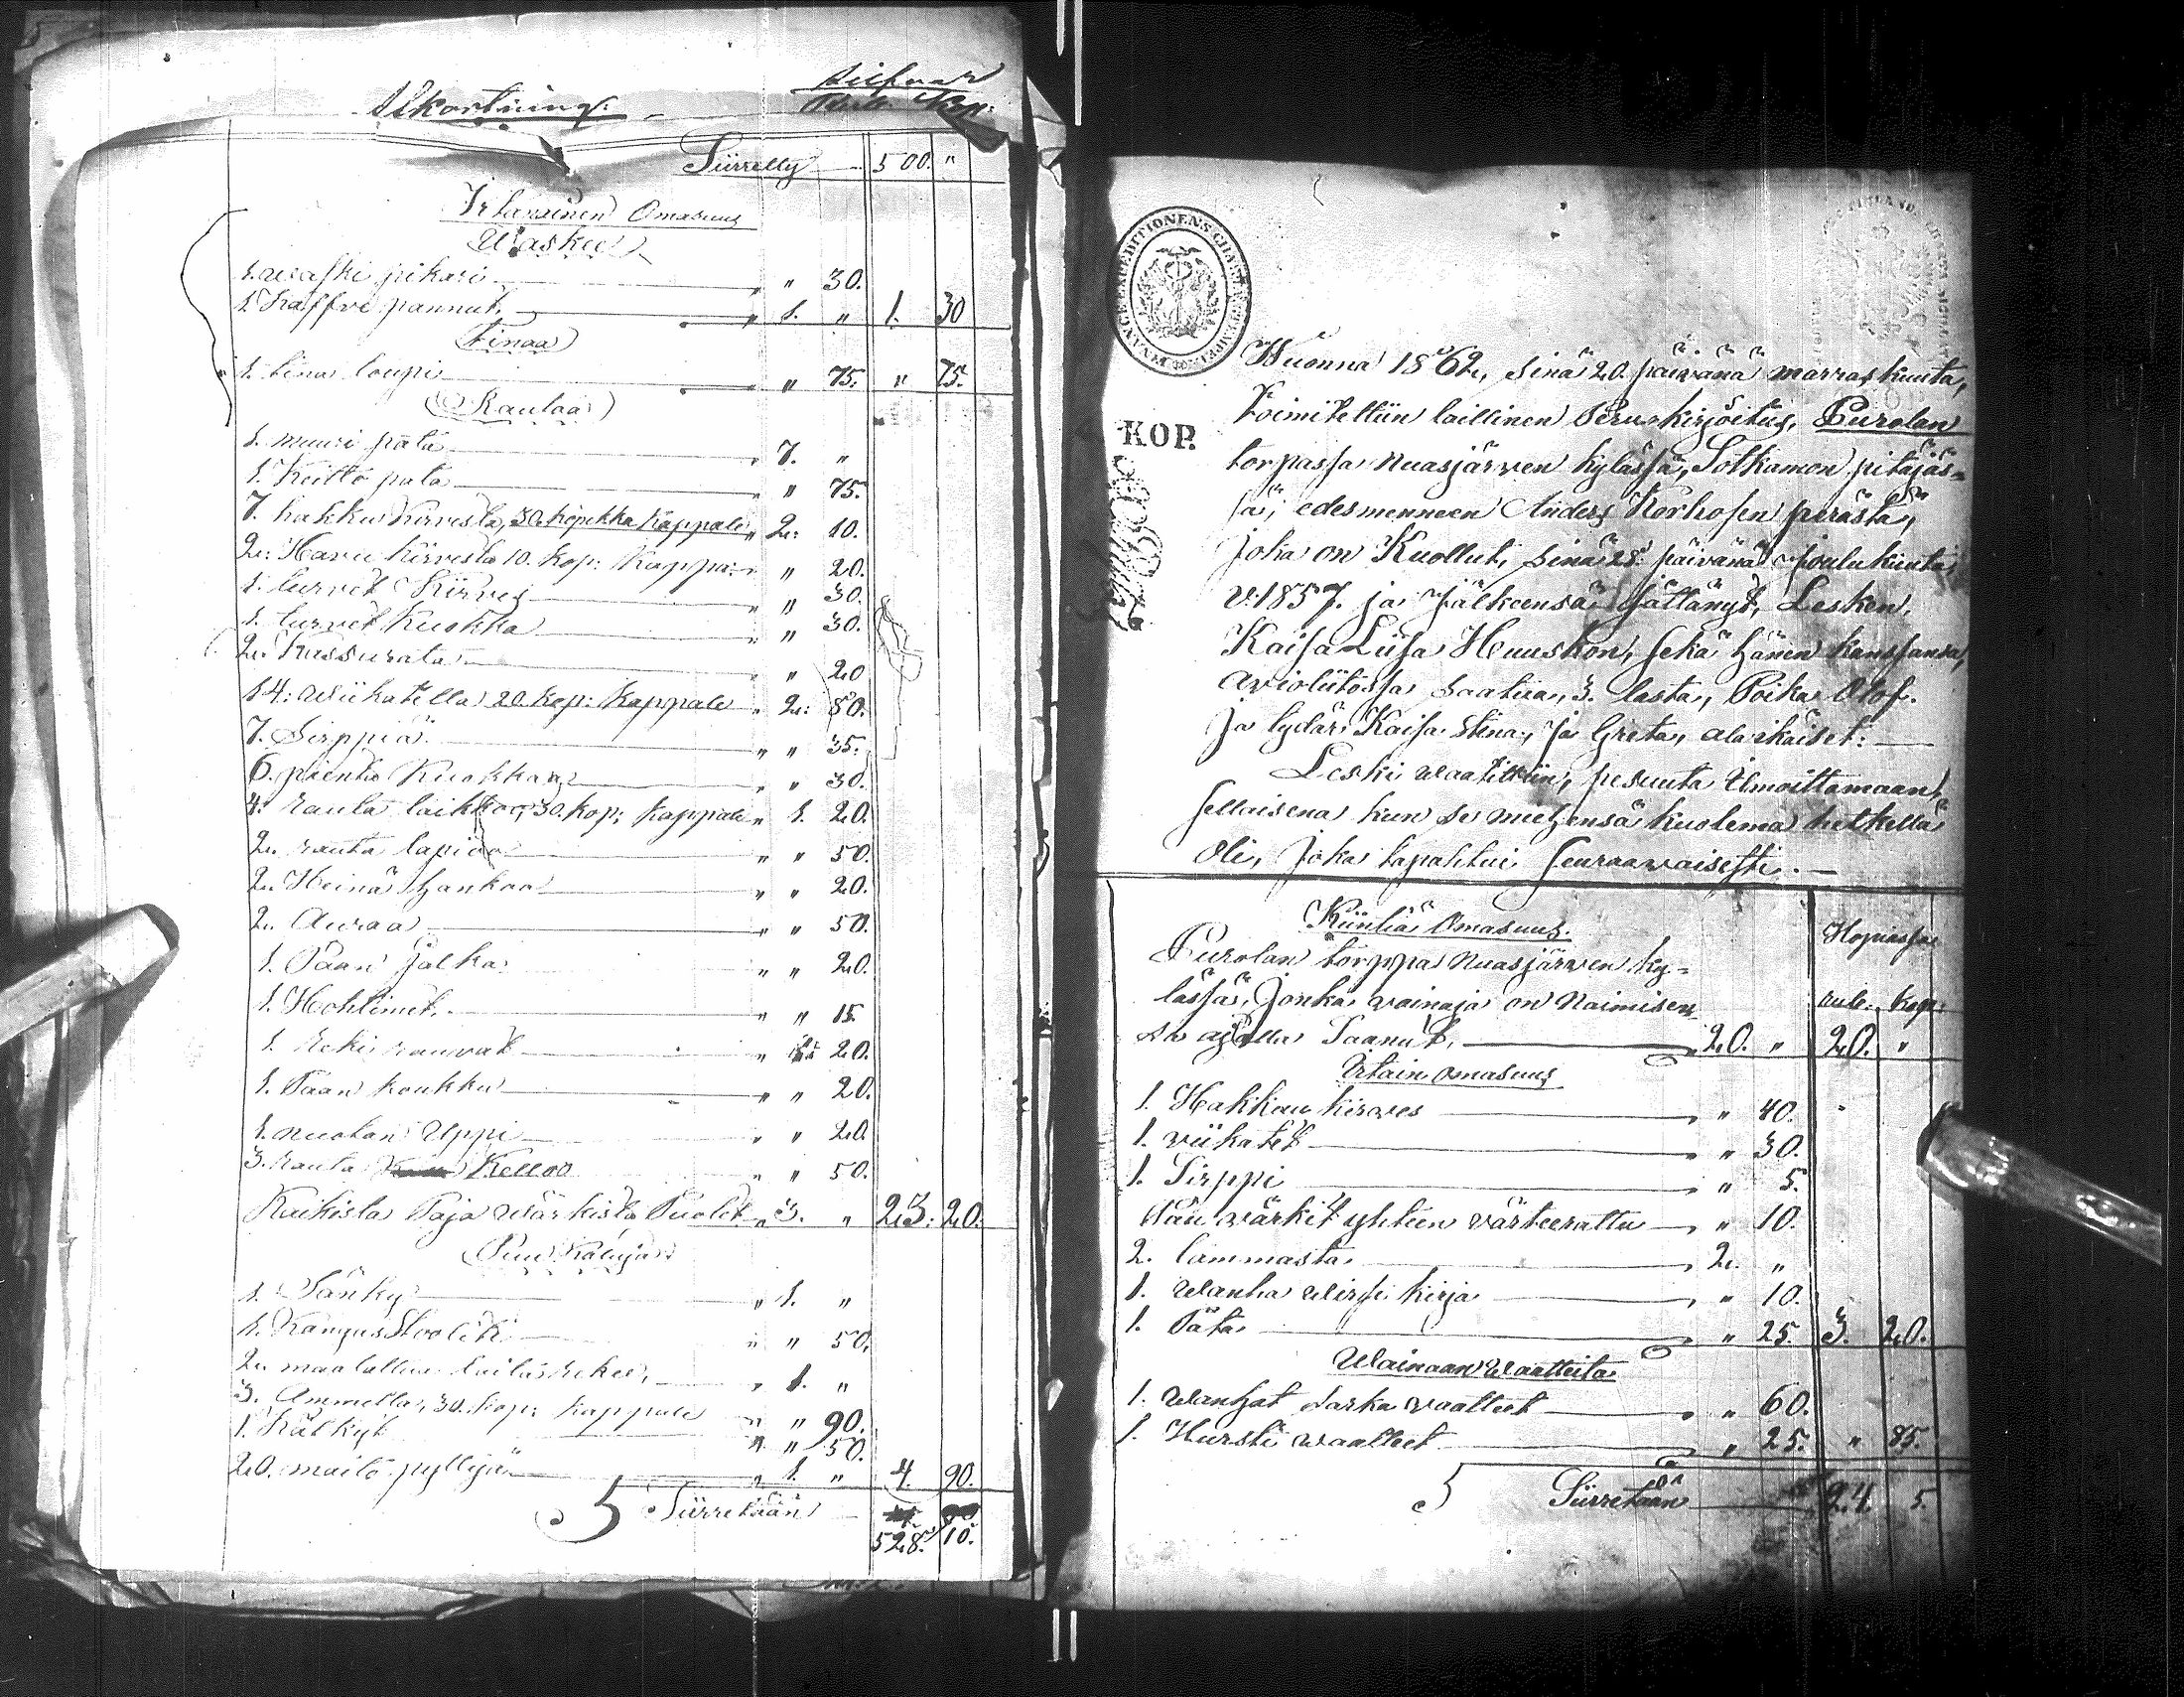 Afkortning.
Silfver
Rub. Kop:
Siirretty 500. "
Irtanainen Omasuus
Waskea
1. waski pikari " " 30.
1. kaffve pannut " 1. " 1. 30
Tinaa
1. tina loupi " 75. " 75.
Rautaa
1. muuri pata " 7. "
1. Keitto pata " " 75.
7. hakku kirvestä, 30. kopekka kappale " 2: 10.
2: Havu kirvestä 10. kop: kappa: " " 20.
1. turvet Kirves " " 30.
1. turvet Kuokka " " 30.
2. Kassurata " 20
14: wiikatetta 20. kop: kappale " 2: 80.
7. Sirppiä " " 35.
6. pientä Kuokkaa " " 30.
4: rauta laiktoa, 30. kop: kappale " 1. 20.
2. rauta lapioa " " 50.
2. Heinä hankoa " " 20.
2. Auraa " " 50.
1. Paan jalka " " 20.
1. Hohtimet " " 15.
1. Reki rauvat " 20.
1. Paan koukku " " 20.
1. nuotan Uppi " " 20.
3. rauta Kelloa " " 50.
Kaikista Paja wärkistä Puolet " 3. " 23: 20.
Puu Kaluja
1. Sänky " 1. "
1. Kangas stooli " " 50.
2. maalattua laitas rekee, " 1. "
3. Ammetta, 30. kop: kappale " " 90.
1. Kätkyt " " 50.
20. maito pyttyjä " 1. " 4. 90.
Siirretään
528. 10.
FINANCE EXPEDITIONENS CHARTÆ
KOP.
Wuonna 1862, sinä 20. päivänä marraskuuta,
toimitettiin laillinen Perunkirjoitus, Purolan
torpassa Nuasjärven kylässä, Sotkamon pitäjäs=
sä, edesmenneen Anders Korhosen perästä,
joka on Kuollut, sinä 28. päivänä Joulukuuta
v: 1857. ja Jälkeensä jättänyt, Lesken,
Kaisa Liisa Huuskon, sekä hänen kanssansa,
aviolitossa saatua, 3. lasta, Poika Olof.
ja tydär Kaisa Stina, ja Greta, alaikäiset:
Leski waatittiin, pesuuta ilmoittamaan,
sellaisena kun se miehensä kuolema hetkellä
oli, joka tapahtui seuraawaisesti.
Kiintiä Omasuus.
Hopiassa
Purolan torppa Nuasjärven ky=
lässä, jonka wainaja on Naimisen
rub. kop:
sa ajalla Saanut, 20. " 20. "
Irtain omasuus
1. Hakkau kirves " 40.
1. viikatet " 30.
1. Sirppi " 5.
Aau värkit yhteen värteerattu " 10.
2. lammasta 2. "
1. wanha wirsi kirja " 10.
1. Pata " 25. 3. 20.
Wainaan waatteita
1. wanhat sarka vaatteet " 60.
1. Hursti waatteet " 25. " 85.
Siirretään 24. 5.